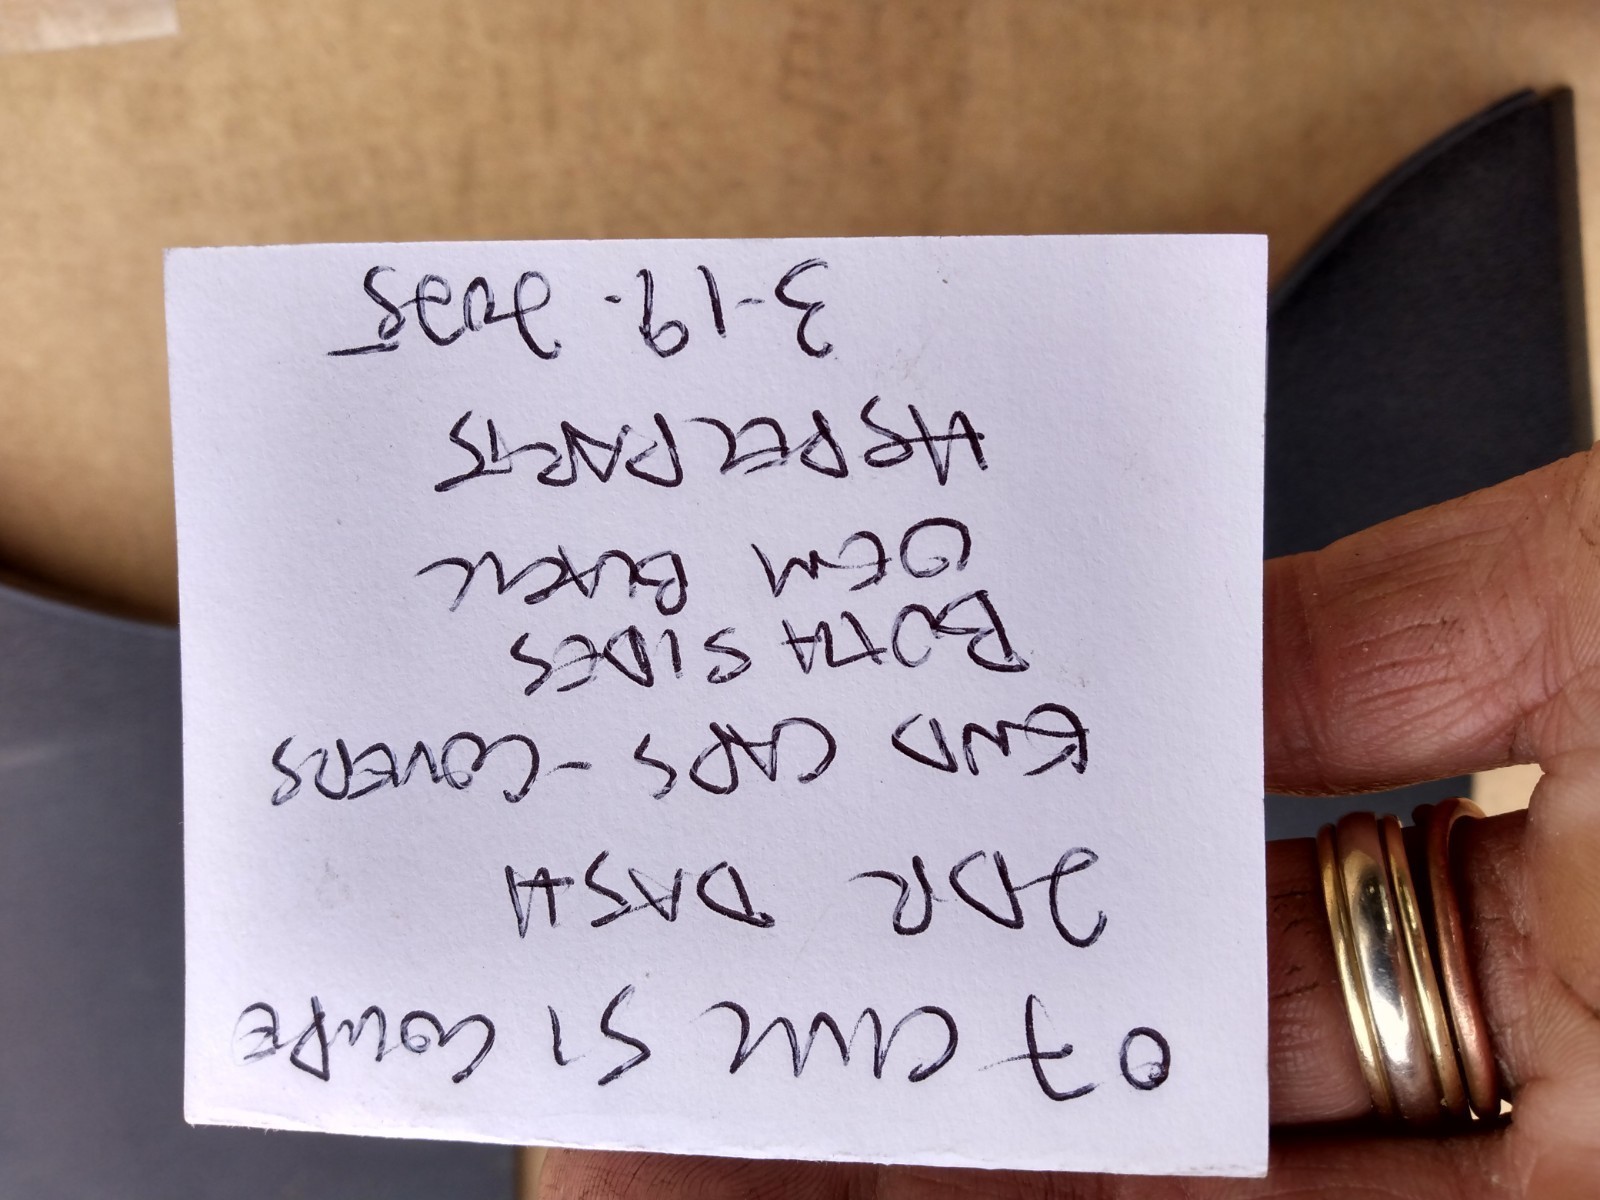 07 CIVIC SI COUPE
2DR DASH
END CAPS - COVERS
BOTH SIDES
OEM BLACK
HYPERPARTS
3-19-2025